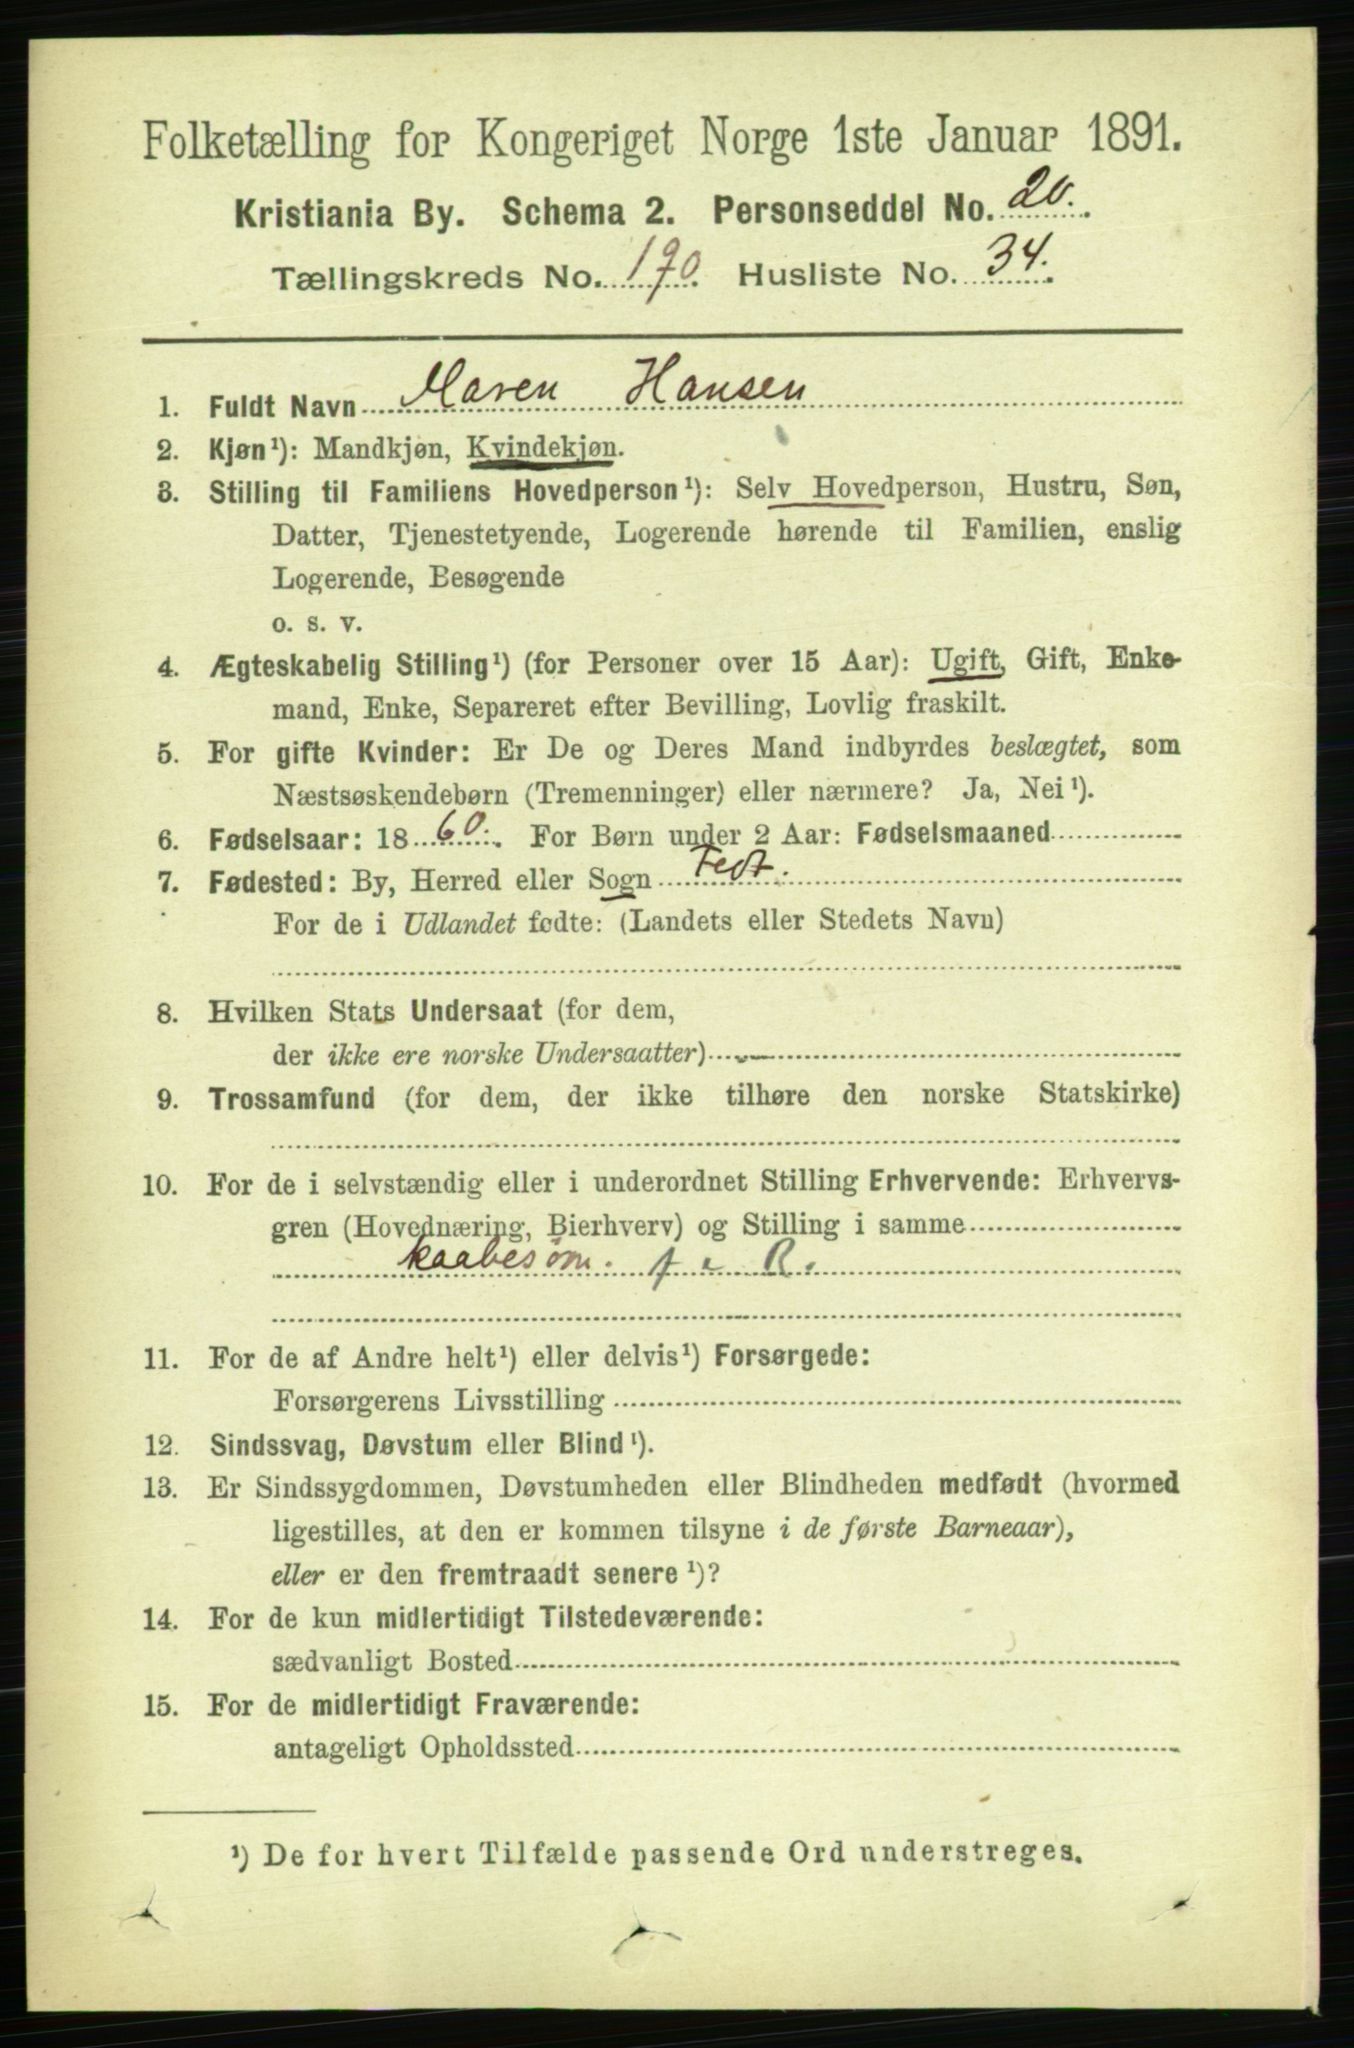 Folketælling for Kongeriget Norge 1ste Januar 1891.
Kristiania By. Schema 2. Personseddel No. 20.
Tællingskreds No. 190. Husliste No. 34.
1. Fuldt Navn Maren Hansen
2. Kjøn¹): Mandkjøn, Kvindekjøn.
3. Stilling til Familiens Hovedperson¹): Selv Hovedperson, Hustru, Søn,
Datter, Tjenestetyende, Logerende hørende til Familien, enslig
Logerende, Besøgende
o. s. v.
4. Ægteskabelig Stilling¹) (for Personer over 15 Aar): Ugift, Gift, Enke-
mand, Enke, Separeret efter Bevilling, Lovlig fraskilt.
5. For gifte Kvinder: Er De og Deres Mand indbyrdes beslægtet, som
Næstsøskendebørn (Tremenninger) eller nærmere? Ja, Nei¹).
6. Fødselsaar: 1860. For Børn under 2 Aar: Fødselsmaaned
7. Fødested: By, Herred eller Sogn Fedt.
For de i Udlandet fødte: (Landets eller Stedets Navn)
8. Hvilken Stats Undersaat (for dem,
der ikke ere norske Undersaatter)
9. Trossamfund (for dem, der ikke tilhøre den norske Statskirke)
10. For de i selvstændig eller i underordnet Stilling Erhvervende: Erhvervs-
gren (Hovednæring, Bierhverv) og Stilling i samme
kaabesøm. R.
11. For de af Andre helt¹) eller delvis¹) Forsørgede:
Forsørgerens Livsstilling
12. Sindssvag, Døvstum eller Blind¹).
13. Er Sindssygdommen, Døvstumheden eller Blindheden medfødt (hvormed
ligestilles, at den er kommen tilsyne i de første Barneaar),
eller er den fremtraadt senere¹)?
14. For de kun midlertidigt Tilstedeværende:
sædvanligt Bosted
15. For de midlertidigt Fraværende:
antageligt Opholdssted
¹) De for hvert Tilfælde passende Ord understreges.